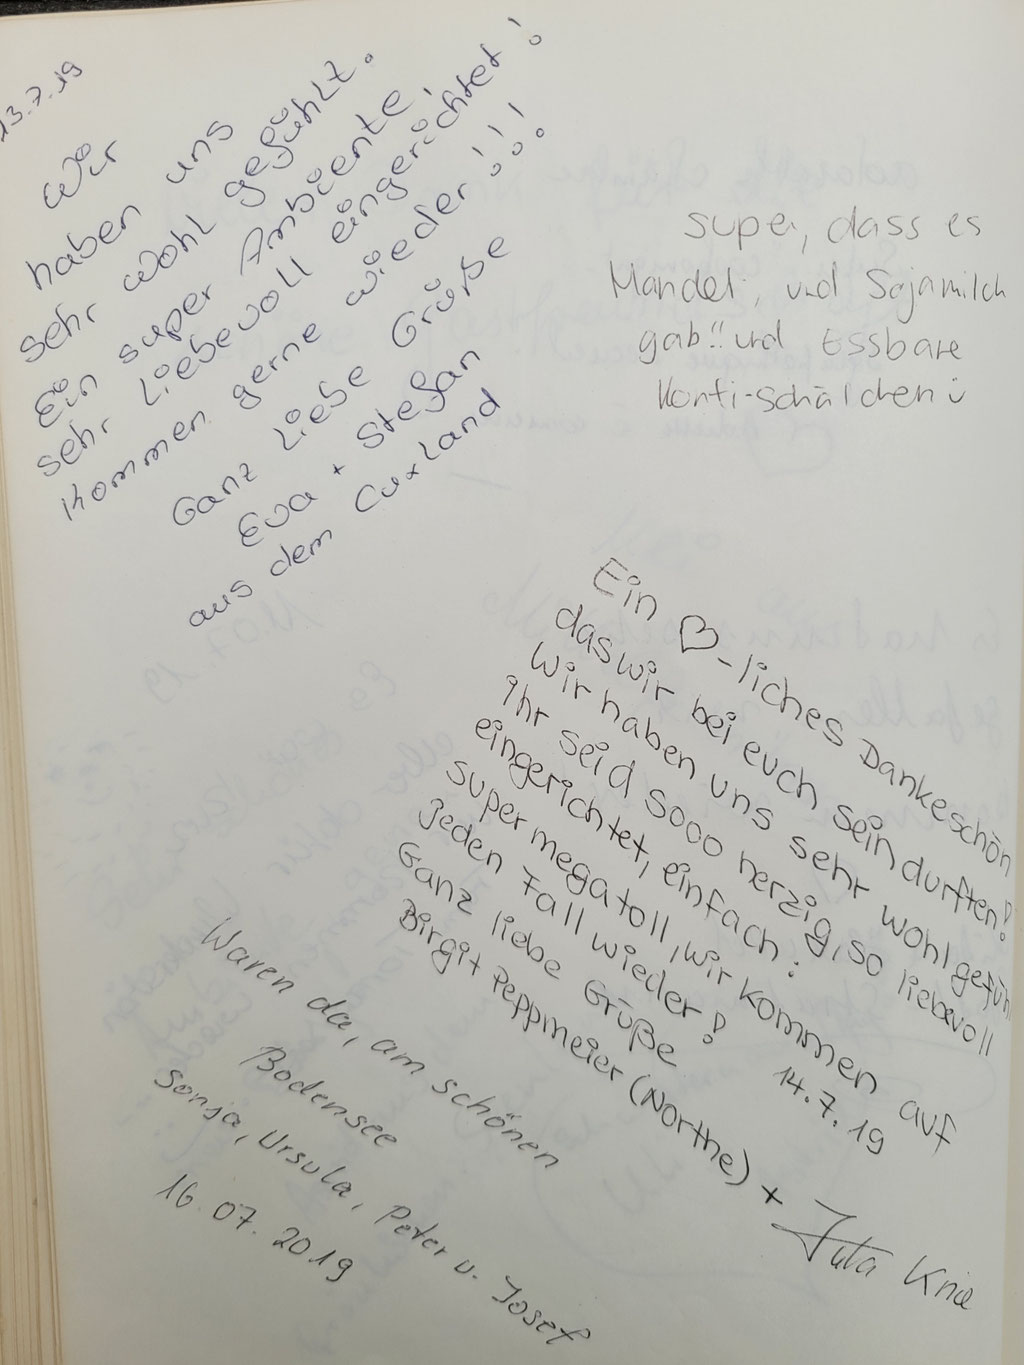 13.7.19
Wir
haben uns
sehr wohl gefühlt.
Ein super Ambiente,
sehr liebevoll eingerichtet!
Kommen gerne wieder!!!
Ganz liebe Grüße
Eva + Stefan
aus dem Cuxland
super, dass es
Mandel, und Sojamilch
gab!! und Essbare
Konfi-schälchen ü
Ein ♡-liches Dankeschön
das wir bei euch sein durften!
Wir haben uns sehr wohl gefüh
ihr seid sooo herzig, so liebevoll
eingerichtet, einfach:
super mega toll, wir kommen auf
jeden Fall wieder!
14.7.19
Ganz liebe Grüße
Birgit Peppmeier (Northe) +
Waren da, am schönen
Bodensee
Sonja, Ursula, Peter u. Josef
16.07.2019